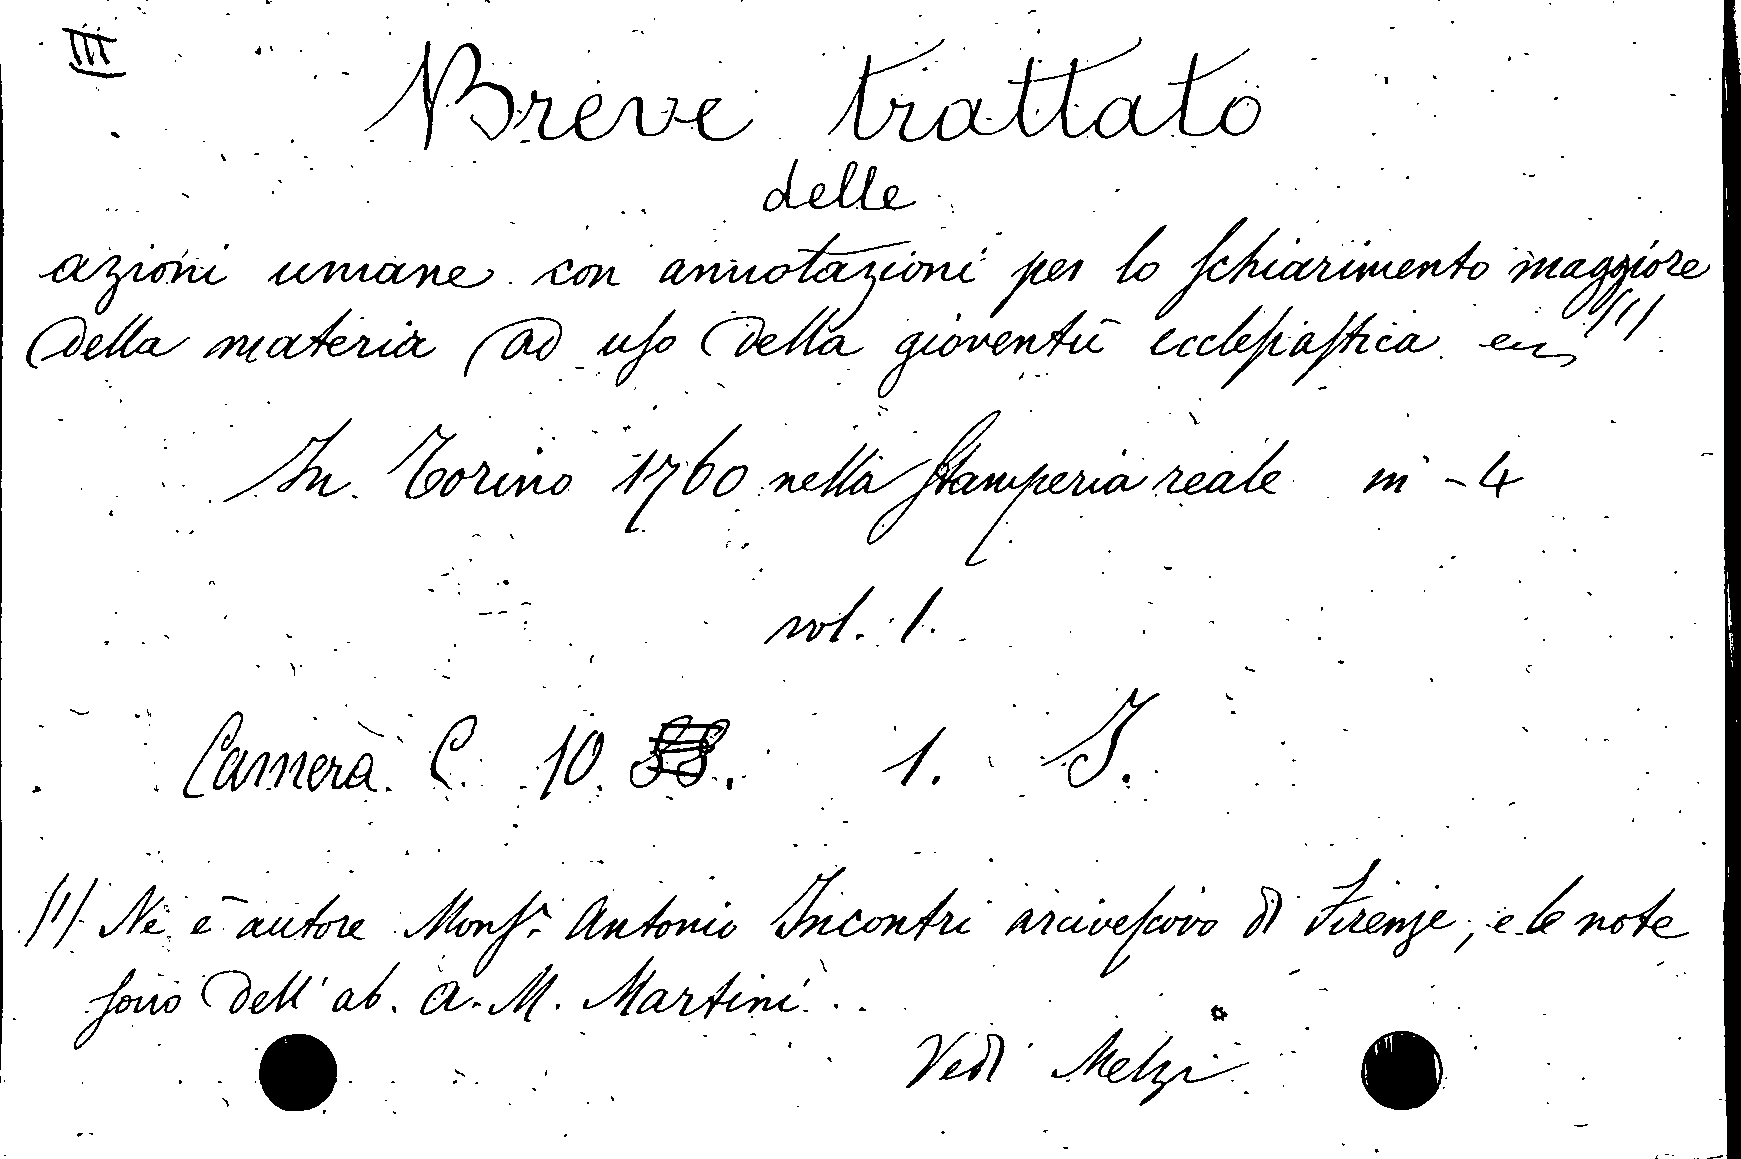 III
Breve trattato
delle
azioni umane con annotazioni per lo schiarimento maggiore
della materia ad uso della gioventù ecclesiastica (1)
In Torino 1760 nella Stamperia reale in - 4
vol. 1.
Camera C. 10. 1. I.
(1) Ne è autore Mons.r Antonio Incontri arcivescovo di Firenze, e le note
sono dell' ab. A. M. Martini.
Vedi Melzi